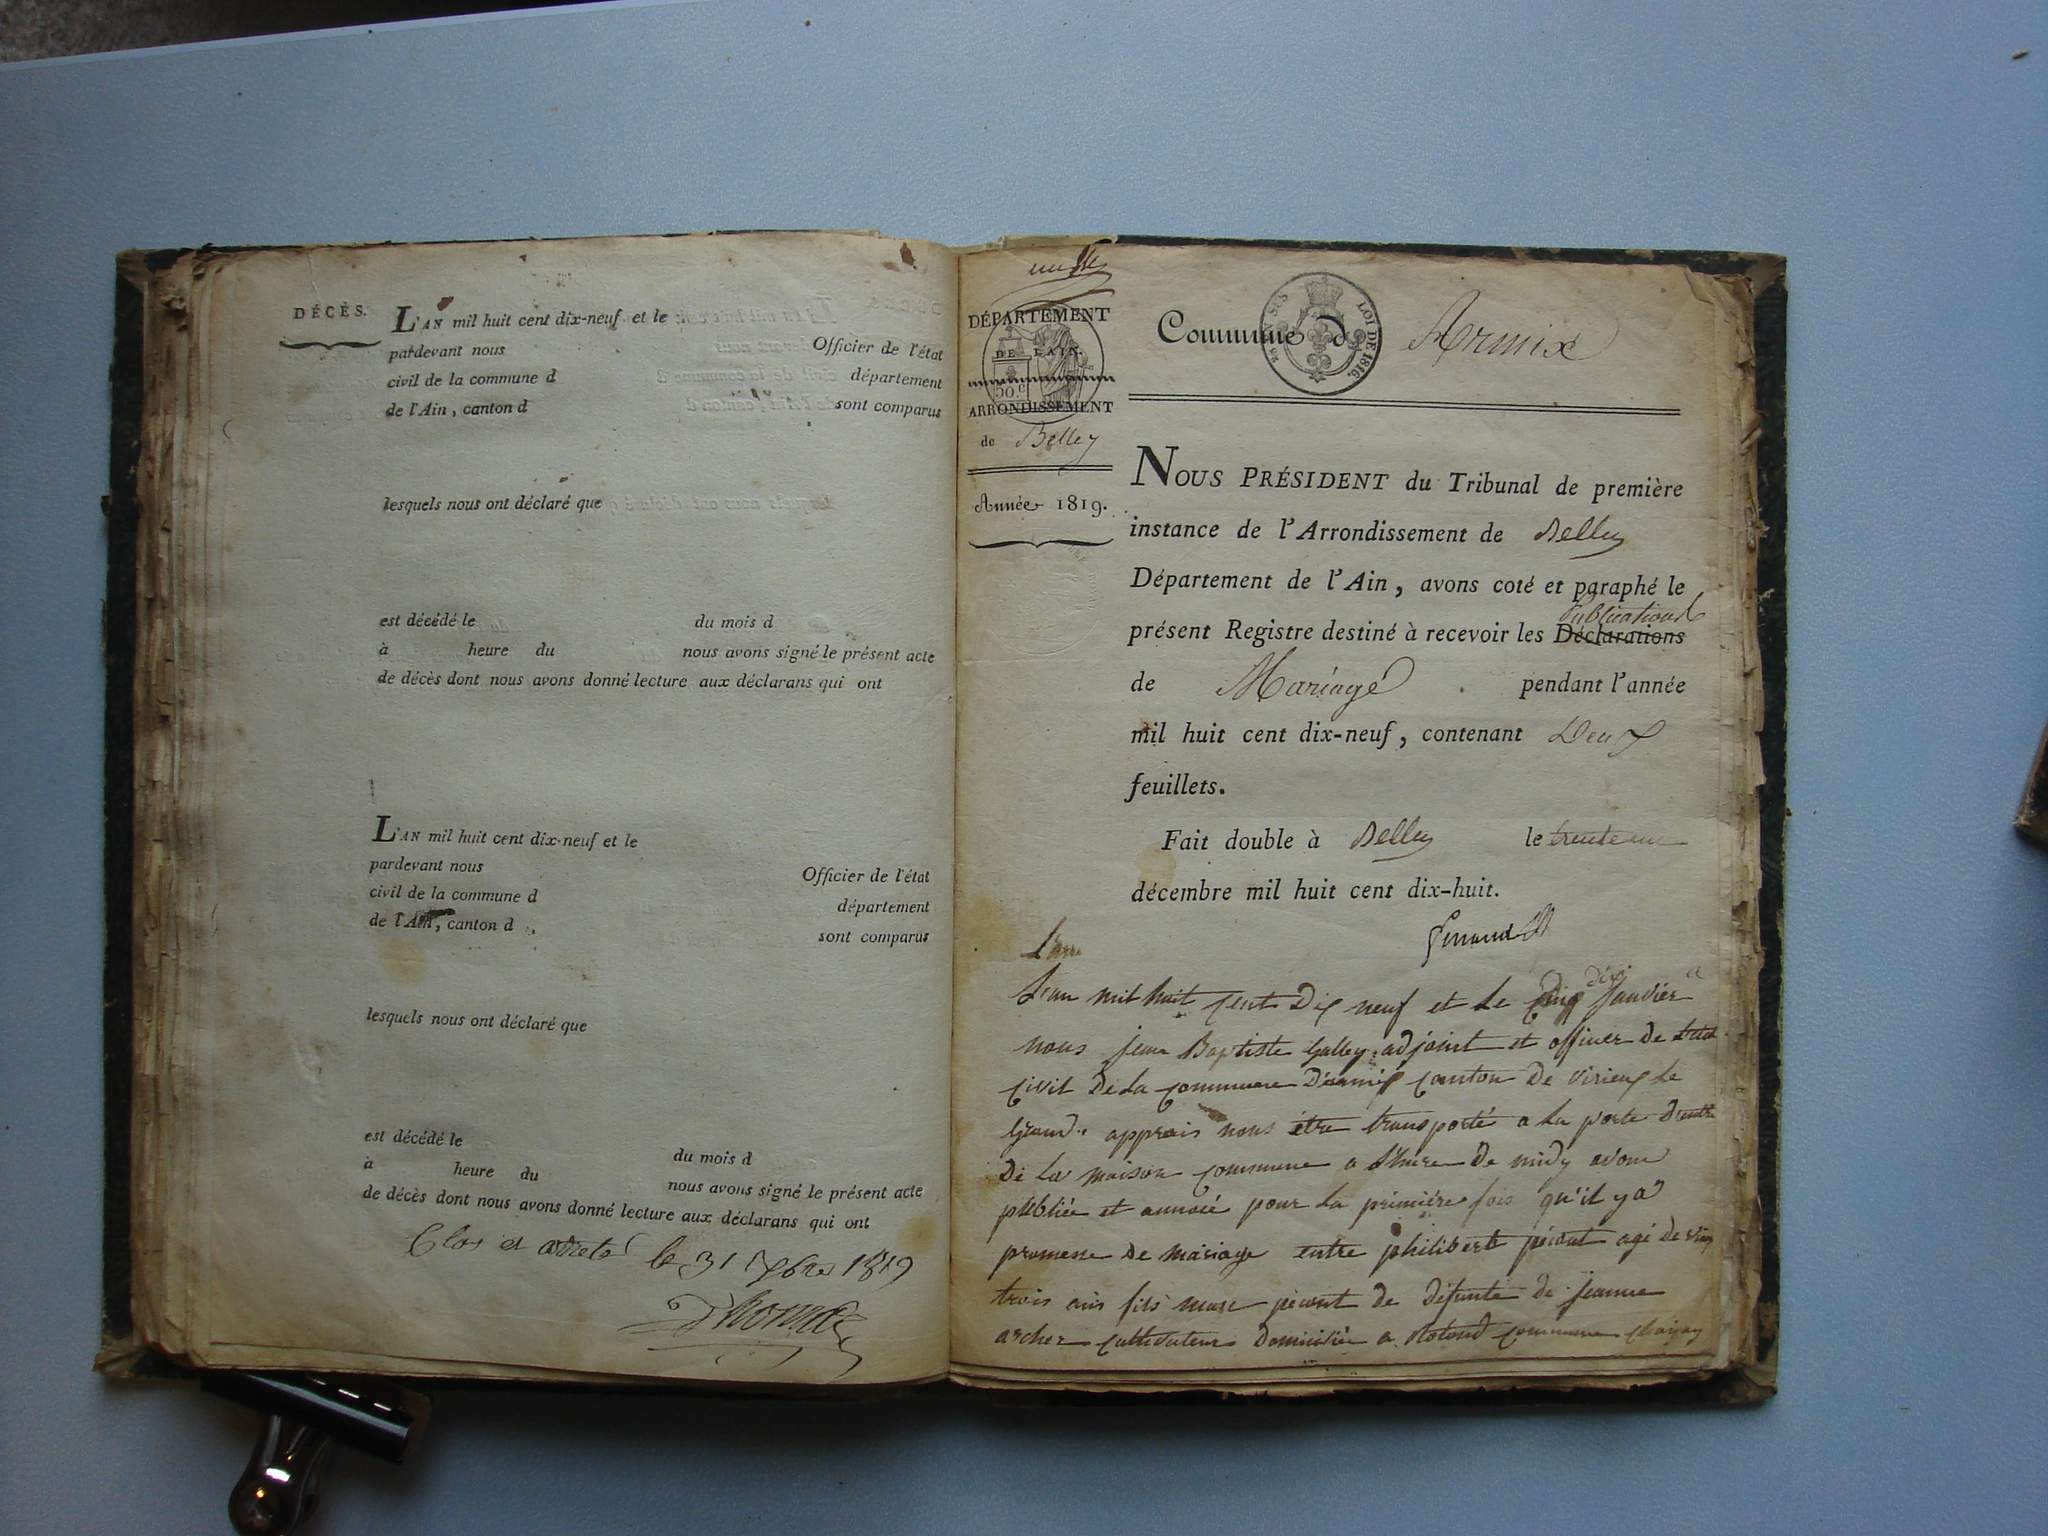 DÉCÈS.
L'AN mil huit cent dix-neuf et le
pardevant nous Officier de l'état
civil de la commune d département
de l'Ain, canton d sont comparus
lesquels nous ont déclaré que
est décédé le du mois d
à heure du nous avons signé le présent acte
de décès dont nous avons donné lecture aux déclarans qui ont
L'AN mil huit cent dix-neuf et le
pardevant nous Officier de l'état
civil de la commune d département
de l'Ain, canton d sont comparus
lesquels nous ont déclaré que
est décédé le du mois d
à heure du nous avons signé le présent acte
de décès dont nous avons donné lecture aux déclarans qui ont
Clos et arreté le 31 Xbre 1819
DÉPARTEMENT
DE L'AIN.
50 c
ARRONDISSEMENT
de Belley
Année 1819.
Commune d Armix
LOI DE 1816.
NOUS PRÉSIDENT du Tribunal de première
instance de l'Arrondissement de Belley
Département de l'Ain, avons coté et paraphé le
publications
présent Registre destiné à recevoir les Déclarations
de Mariage pendant l'année
mil huit cent dix-neuf, contenant Deux
feuillets.
Fait double à Belley le trente un
décembre mil huit cent dix-huit.
L'an
L'an mil huit cent Dix neuf et le Janvier a
nous jean Baptiste Galley adjoint et officier de
civil De la commune D'armix canton De virieux Le
Grand apprais nous être transporté a La porte
De La maison commune a L'hure De midy avons
publiée et annoée pour La première fois qu'il y a
promesse De mariage entre philibert agé De
trois ans fils de défunte de jeanne
archer cultivateur Domicilié a commune